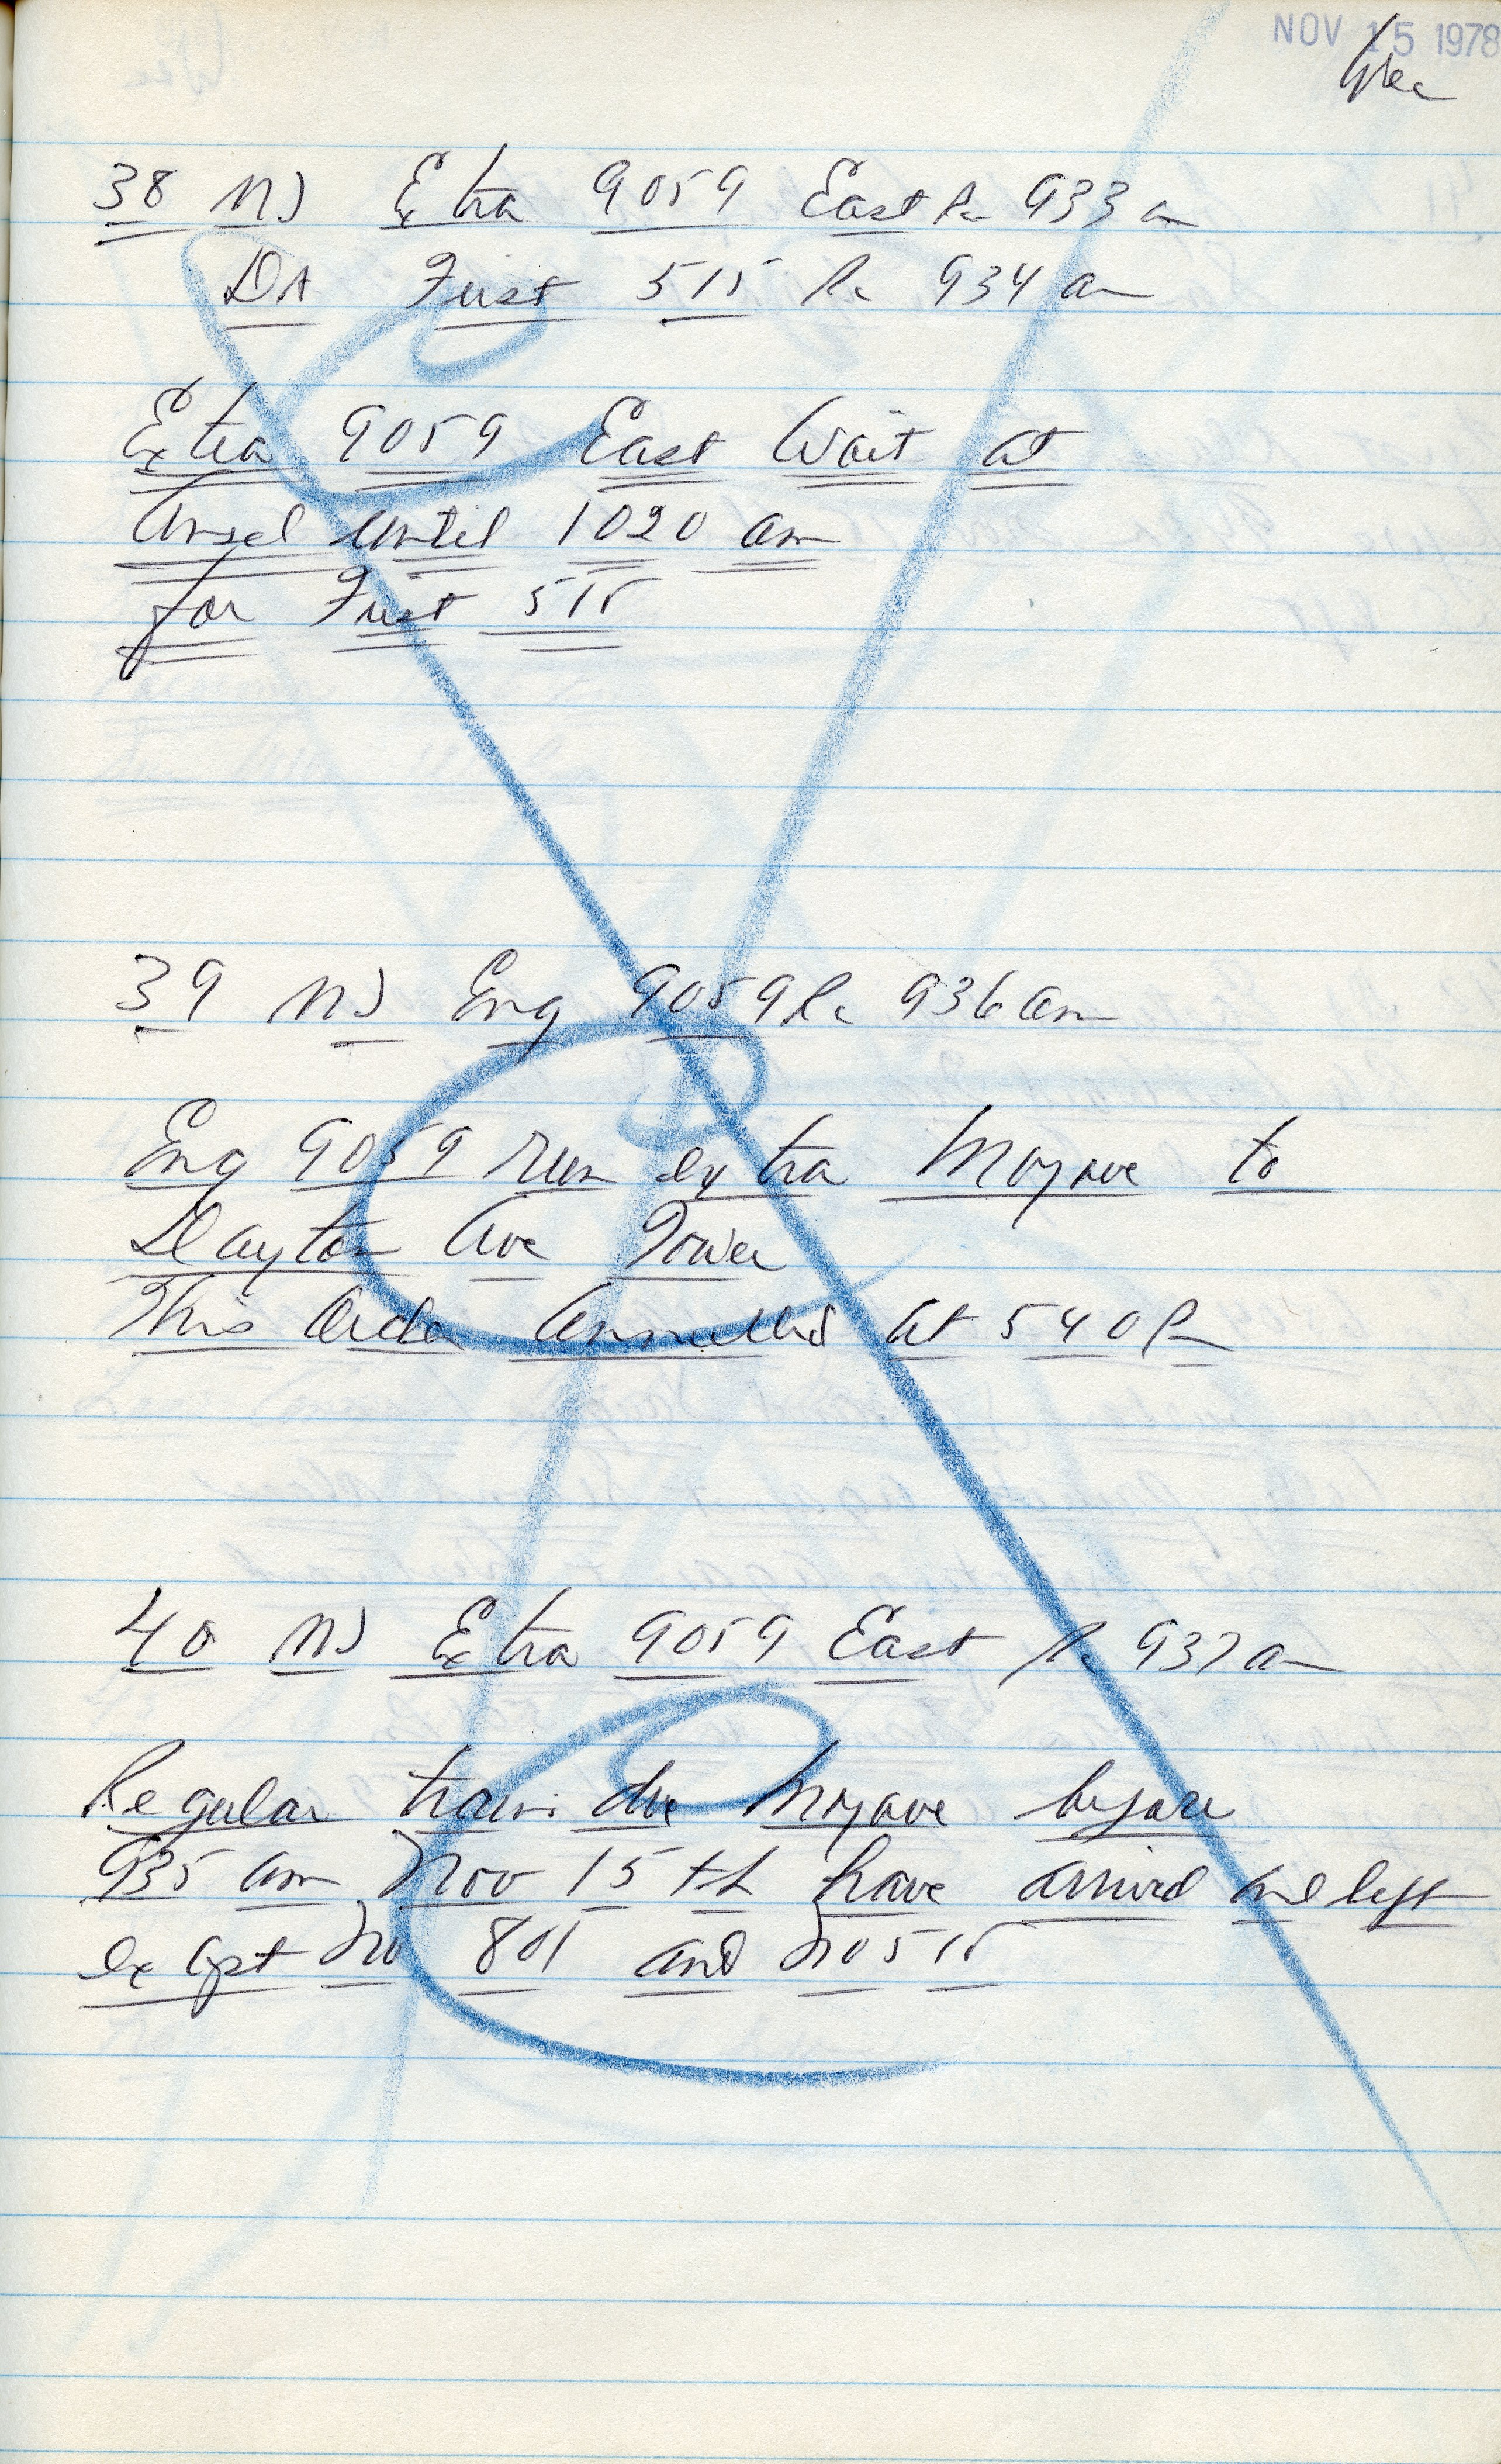 NOV 15 1978
38 MJ Extra 9059 East 933 am
DA First 515 934 am
Extra 9059 East Wait at
Ansel until 1020 am
for First 515
39 MJ Eng 9059 936 am
Eng 9059 run extra Mojave to
Dayton Ave Tower
This Order Annulled at 540 Pm
40 MJ Extra 9059 East 937 am
Regular trains due Mojave before
935 am Nov 15th have arrived and left
except No 801 and No 515